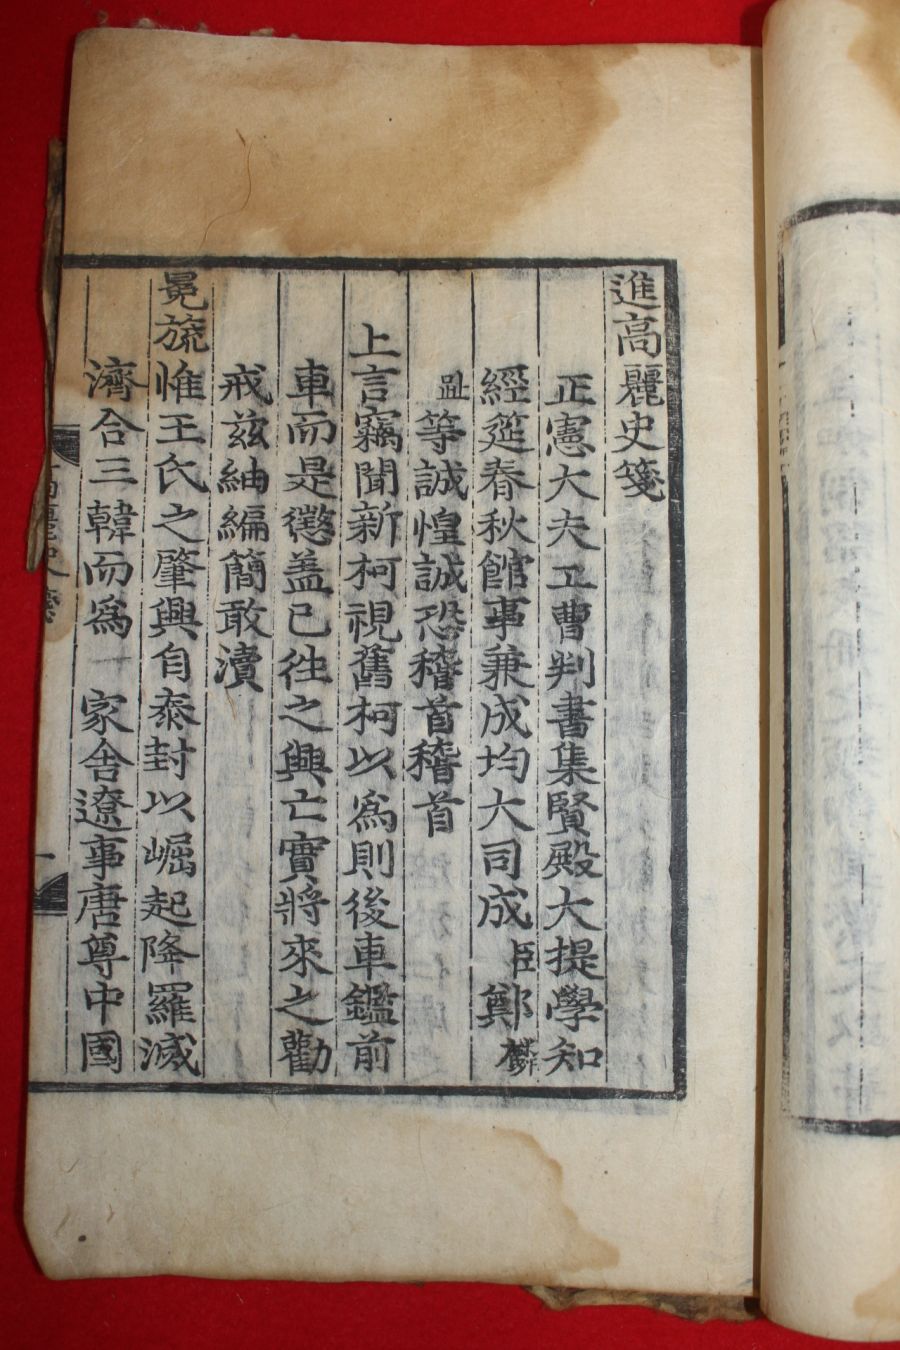 進高麗史箋
正憲大夫工曹判書集賢殿大提學知
經筵春秋館事兼成均大司成臣鄭麟
趾等誠惶誠恐稽首稽首
上言竊聞新柯視舊柯以爲則後車鑑前
車而是懲盖已徃之興亡實將來之勸
戒茲紬編簡敢瀆
冕旒惟王氏之肇興自泰封以崛起降羅滅
濟合三韓而爲一家舍遼事唐尊中國
高麗史箋
一